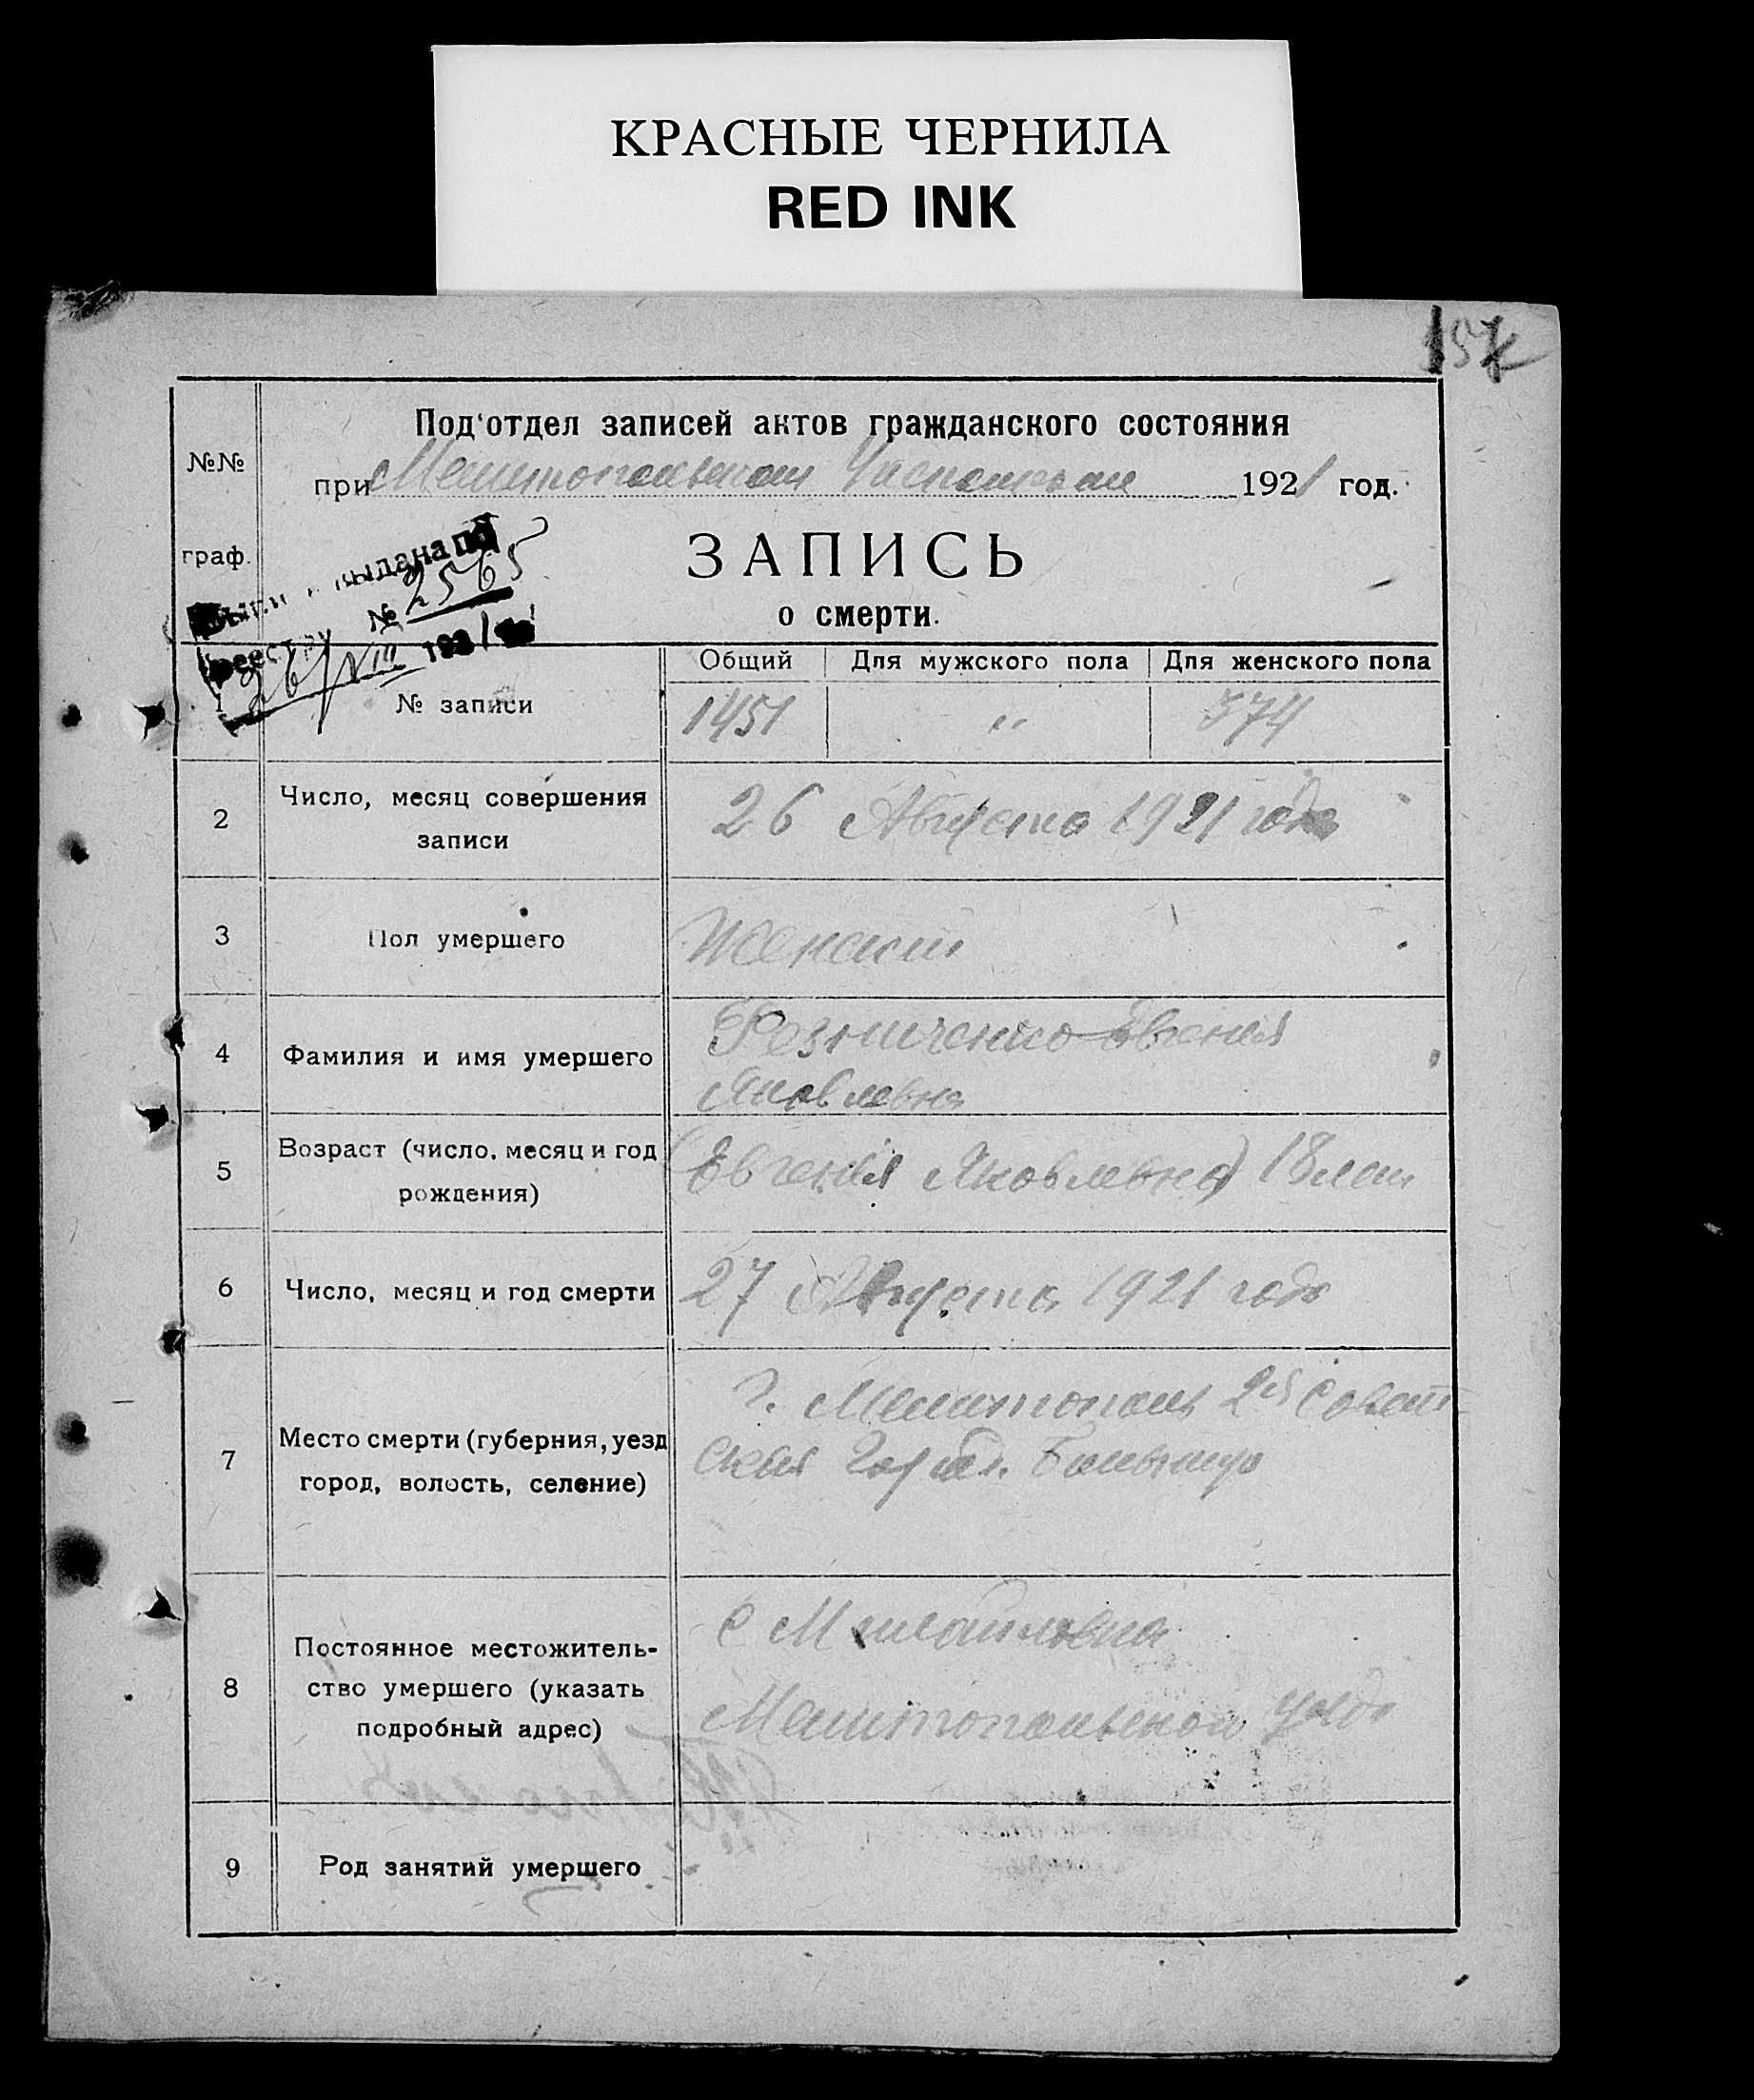 КРАСНЫЕ ЧЕРНИЛА
RED INK
157
№№
граф.
Под'отдел записей актов гражданского состояния
при Мелитопольском Исполкоме 1921 год.
выдана по
реестру № 2565
26/VIII 1921
ЗАПИСЬ
о смерти.
№ записи
Общий Для мужского пола Для женского пола
1451 " 574
2 Число, месяц совершения записи
26 Августа 1921 года
3 Пол умершего
Женский
4 Фамилия и имя умершего
Резниченко Евгения
Яковлевна
5 Возраст (число, месяц и год
рождения)
(Евгения Яковлевна) 18 лет
6 Число, месяц и год смерти
27 Августа 1921 года
7 Место смерти (губерния, уезд
город, волость, селение)
г. Мелитополь 2я Совет-
ская Больница
8 Постоянное местожитель-
ство умершего (указать
подробный адрес)
с Михайловка
Мелитопольской уезда
9 Род занятий умершего